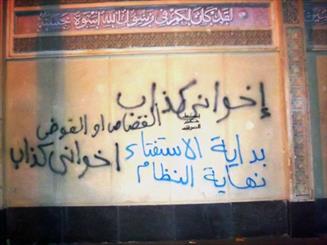 لقد كان لكم في رسول الله أسوة حسنة
إخواني كذاب
القصاص او الفوضى
بداية الاستفتاء
اخواني كذاب
نهاية النظام